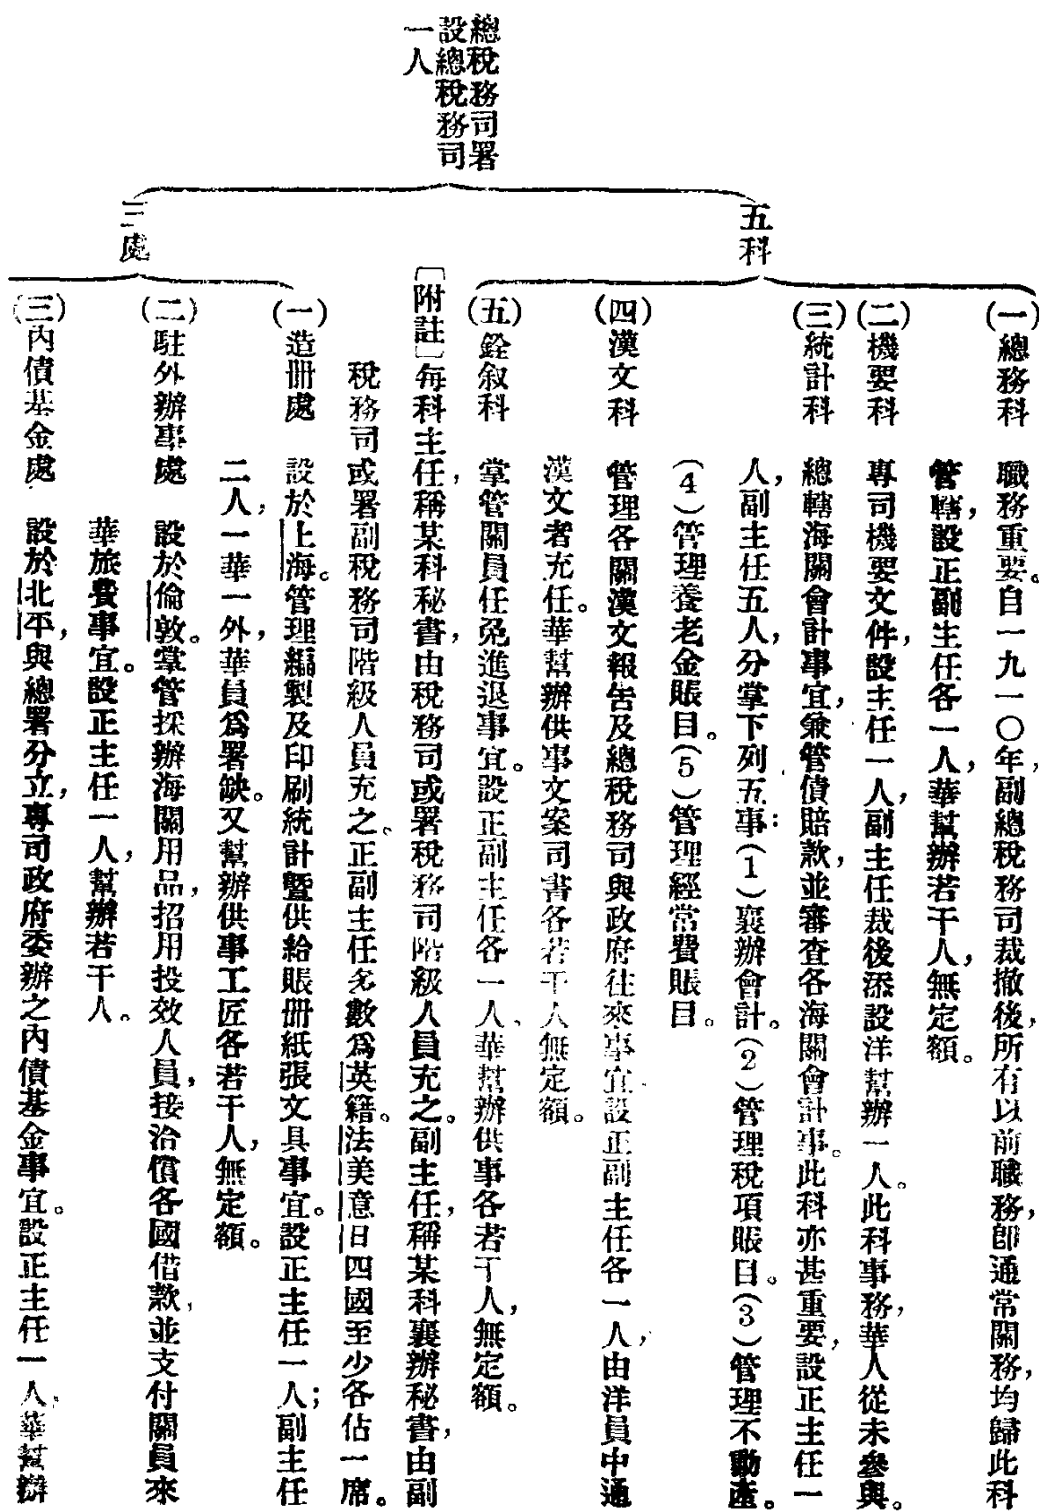 總稅務司署
設總稅務司
一人
五科
(一)總務科 職務重要。自一九一〇年,副總稅務司裁撤後,所有以前職務,卽通常關務,均歸此科
管轄,設正副主任各一人,華幫辦若干人,無定額。
(二)機要科 專司機要文件,設主任一人,副主任裁後添設洋幫辦一人。此科事務,華人從未參與。
(三)統計科 總轄海關會計事宜,兼管債賠款,並審查各海關會計事。此科亦甚重要,設正主任一
人,副主任五人,分掌下列五事:(1)襄辦會計。(2)管理稅項賬目。(3)管理不動產。
(4)管理養老金賬目。(5)管理經常費賬目。
(四)漢文科 管理各關漢文報告及總稅務司與政府往來事宜設正副主任各一人,由洋員中通
漢文者充任。華幫辦供事文案司書各若干人無定額。
(五)銓敘科 掌管關員任免進退事宜。設正副主任各一人、華幫辦供事各若干人,無定額。
〔附註〕每科主任,稱某科秘書,由稅務司或署稅務司階級人員充之。副主任,稱某科襄辦秘書,由副
稅務司或署副稅務司階級人員充之。正副主任多數爲英籍。法美意日四國至少各佔一席。
三處
(一)造册處 設於上海。管理編製及印刷統計曁供給賬册紙張文具事宜。設正主任一人;副主任
二人,一華一外,華員爲署缺。又幫辦供事工匠各若干人,無定額。
(二)駐外辦事處 設於倫敦。掌管採辦海關用品,招用投效人員,接洽償各國借款,並支付關員來
華旅費事宜。設正主任一人,幫辦若干人。
(三)內債基金處 設於北平,與總署分立,專司政府委辦之內債基金事宜。設正主任一人,華幫辦